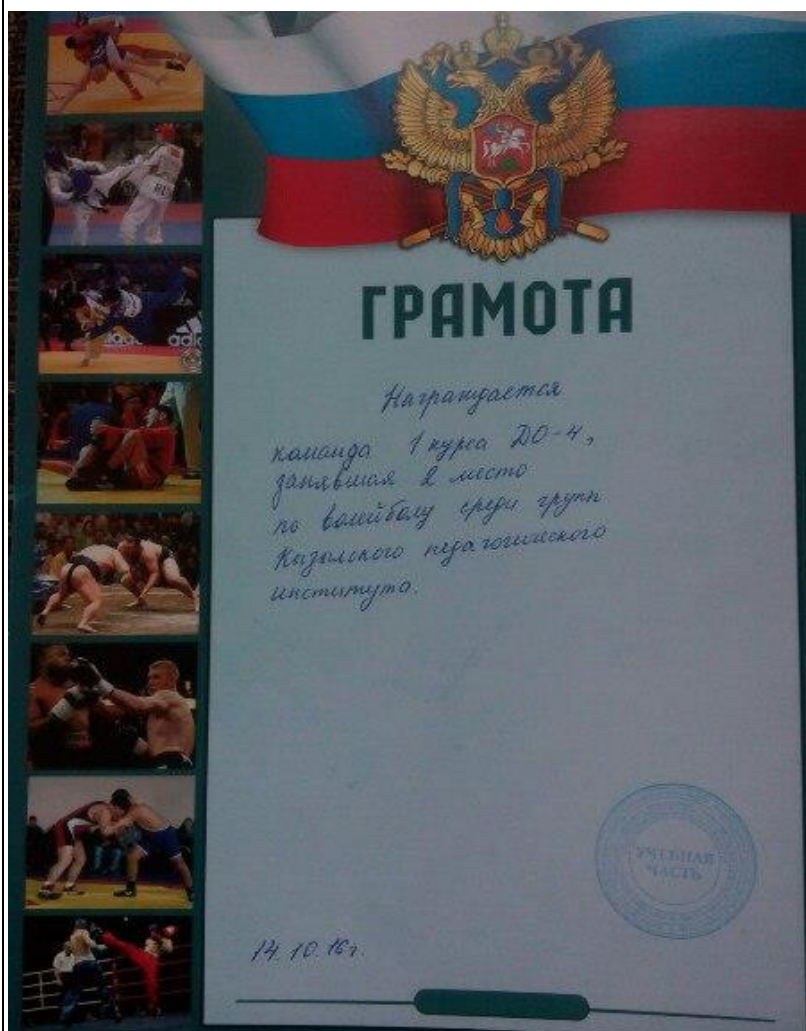 ГРАМОТА
Награждается
команда 1 курса ДО-4,
занявшая 2 место
по волейболу среди групп
Кызылского педагогического
института.
УЧЕБНАЯ
ЧАСТЬ
14.10.16г.
adidas